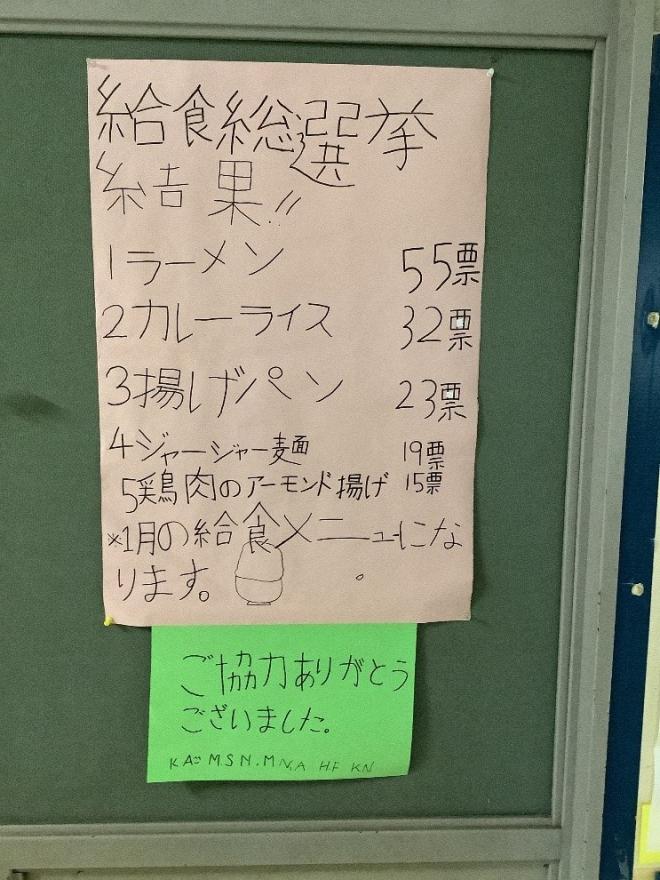 給食総選挙
結果!!
1ラーメン 55票
2カレーライス 32票
3揚げパン 23票
4ジャージャー麺 19票
5鶏肉のアーモンド揚げ 15票
※1月の給食メニューにな
ります。
ご協力ありがとう
ございました。
K A M.S N.M N.A H.F K N